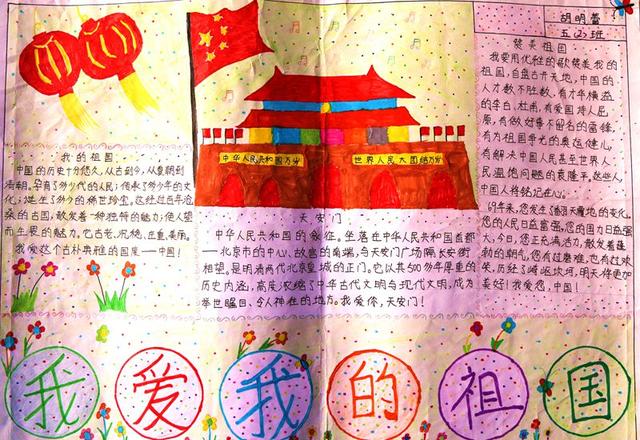 胡明蕾
五(2)班
赞美祖国
我要用优雅的歌赞美我的
祖国,自盘古开天地,中国的
人才数不胜数、有才华横溢
的李白、杜甫,有爱国诗人屈
原,有做好事不留名的雷锋,
有为祖国争光的奥运健儿,
有解决中国人民甚至世界人
民温饱问题的袁隆平,这些人,
中国人将铭记在心。
69年来,您发生了翻天覆地的变化。
您的人民日益富强,您的国力日益强
大,今日,您正充满活力,散发着蓬
勃的朝气,您有过磨难,也有过欢
笑,历经了崎岖坎坷,明天,伴更加
美好!我爱您,中国!
中华人民共和国万岁
世界人民大团结万岁
我的祖国
中国的历史十分悠久,从古到今,从夏朝到
清朝,孕育了多少代的人民;传承了多少年的文
化;诞生了多少的稀世珍宝,这经过百年沧
桑的古国,散发着一种独特的魅力;使人望
而生畏的魅力。它古老、沉稳、庄重、美丽。
我爱这个古朴典雅的国度——中国!
天安门
中华人民共和国的象征。坐落在中华人民共和国首都
——北京市的中心、故宫的南端,与天安门广场隔长安街
相望。是明清两代北京皇城的正门。它以其500多年厚重的
历史内涵,高度浓缩了中华古代文明与现代文明,成为
举世瞩目、令人神往的地方。我爱你,天安门!
我爱我的祖国